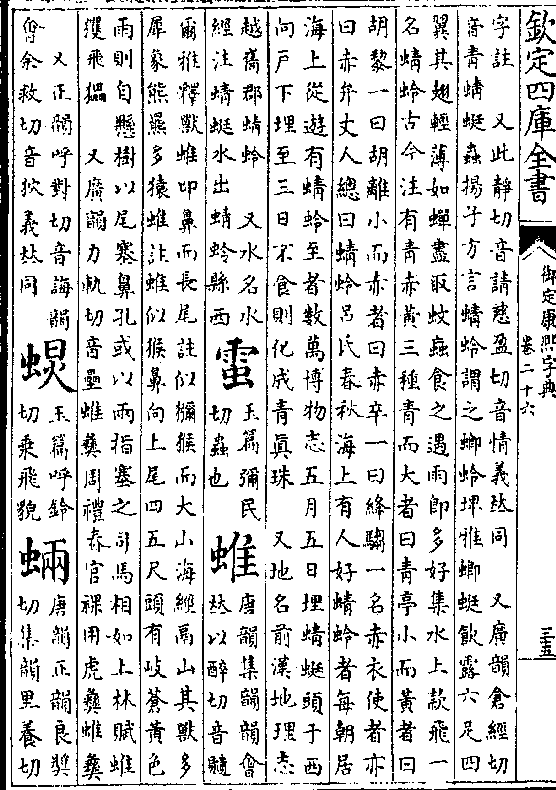 欽定四庫全書
御定康熙字典
卷二十六
三五
字註　又此靜切音請慈盈切音情義𠀤同　又廣韻倉經切
音青蜻蜓蟲揚子方言蜻蛉謂之蝍蛉埤雅蝍蜓飮露六足四
翼其翅輕薄如蟬晝取蚊䖟食之遇雨卽多好集水上款飛一
名蜻蛉古今注有靑赤黃三種靑而大者曰靑亭小而黃者曰
胡黎一曰胡離小而赤者曰赤卒一曰絳騶一名赤衣使者亦
曰赤弁丈人總曰蜻蛉呂氏春秋海上有人好蜻蛉者每朝居
海上從遊有蜻蛉至者數萬博物志五月五日埋蜻蜓頭于西
向戶下埋至三日不食則化成靑眞珠　又地名前漢地理志
越嶲郡蜻蛉　又水名水
經注蜻蜓水出蜻蛉縣西
䖨
玉篇彌民
切蟲也
蜼
唐韻集韻韻會
𠀤以醉切音䜐
爾雅釋獸蜼卬鼻而長尾註似獼猴而大小海經鬲山其獸多
犀象熊羆多猿蜼註蜼似猴鼻向上尾四五尺頭有岐蒼黃色
雨則自懸樹以尾塞鼻孔或以兩指塞之司馬相如上林賦蜼
玃飛猵　又廣韻力軌切音壘蜼彝周禮春官祼用虎彝蜼彝
又正韻呼對切音誨韻
會余救切音狖義𠀤同
𧍖
玉篇呼鈴
切乗飛貌
蜽
唐韻正韻良奬
切集韻里養切